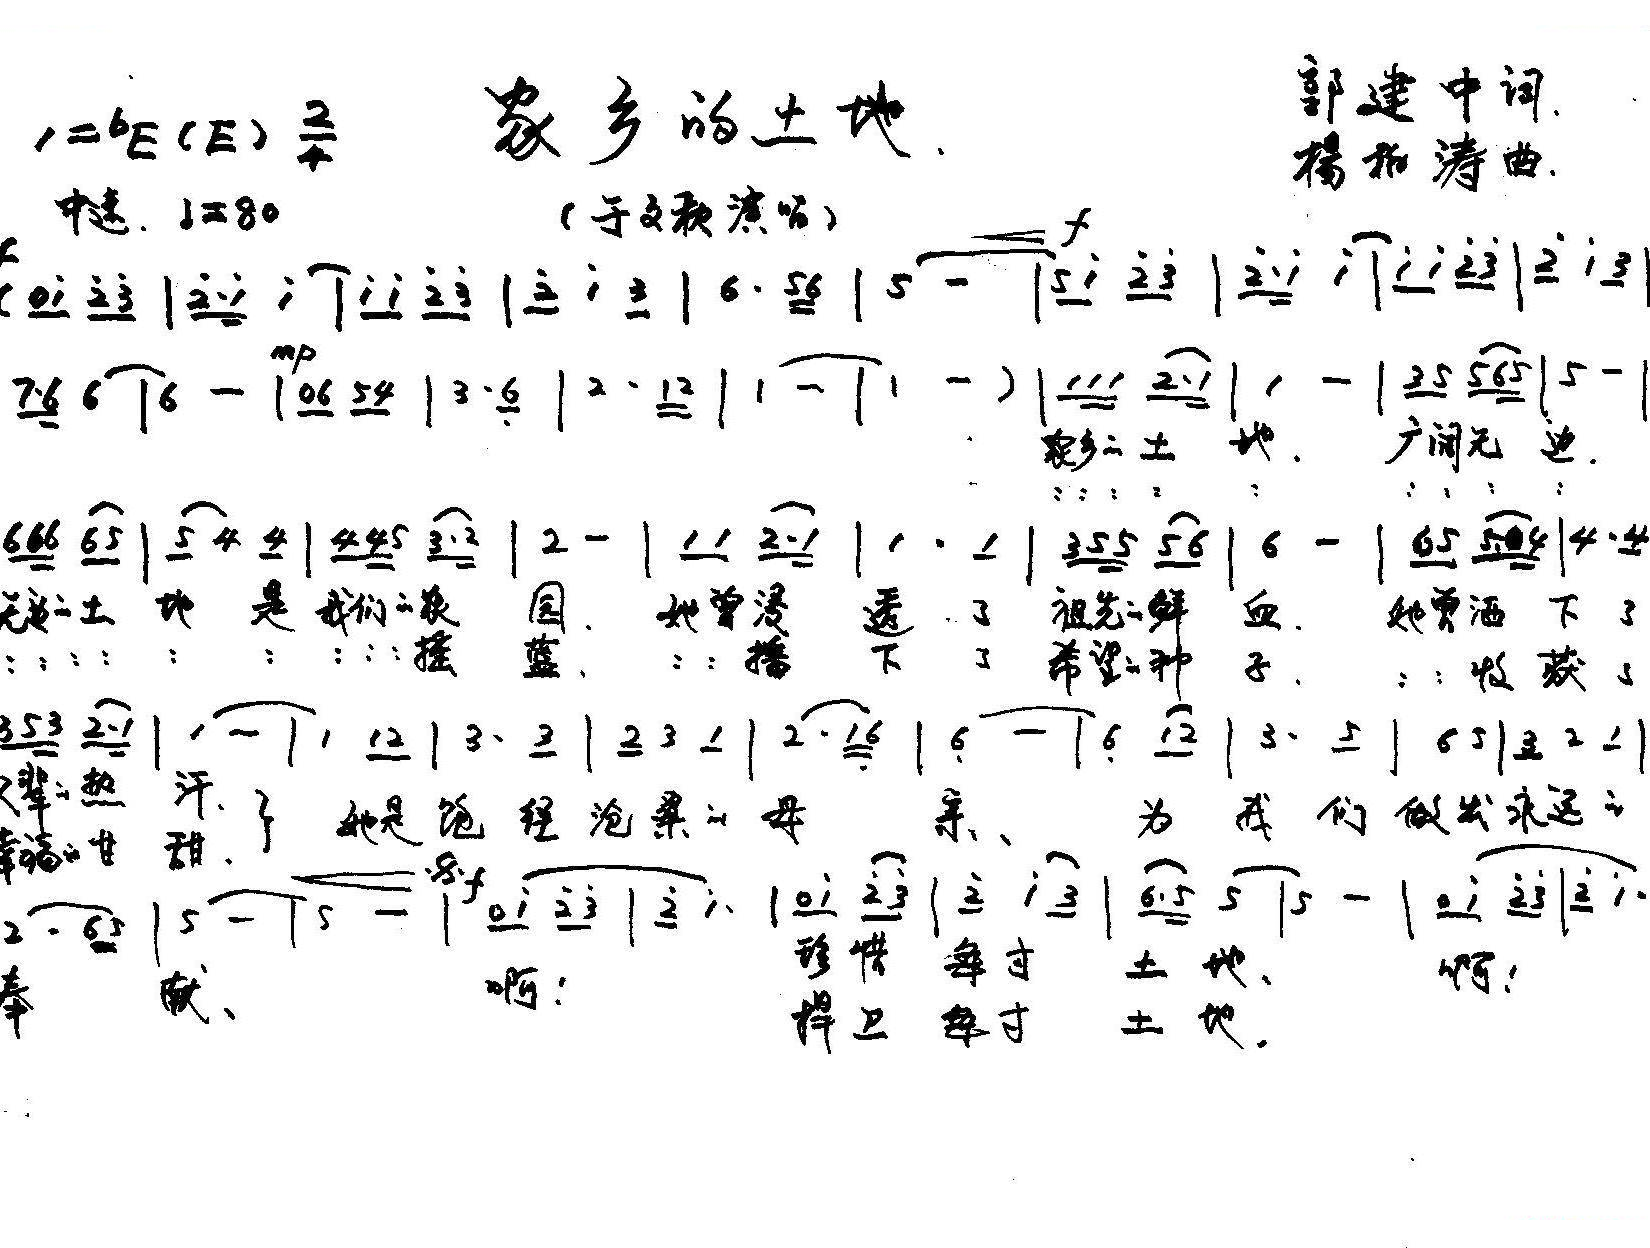 1=bE(E) 2/4 家乡的土地. 郭建中词.
杨柏涛曲.
中速. ♩=80 (于文歌演唱)
f
(0i 23 | 2·i i | ii 23 | 2 i 3 | 6· 56 | 5 - | 5i 23 | 2·i i | ii 23 | 2 i 3 |
mp
7·6 6 | 6 - | 06 54 | 3·6 | 2· 12 | 1 - | 1 - ) | 111 2·1 | 1 - | 35 565 | 5 - |
家乡的土 地. 广阔无 边.
: : : : : : : : :
666 65 | 5 4 4 | 445 3·2 | 2 - | 11 2·1 | 1· 1 | 355 56 | 6 - | 65 5·4 | 4·4
无边的土 地 是 我们的家 园. 她曾浸 透 了 祖先的鲜 血. 她曾洒 下 了
: : : : : : : : : 摇 蓝. : : 播 下 了 希望的种 子. : : 收 获 了
353 2·1 | 1 - | 1 12 | 3· 3 | 2 3 1 | 2· 16 | 6 - | 6 12 | 3· 5 | 6 5 | 3 2 1 |
父辈的热 汗. } 她是 饱 经 沧 桑 的 母 亲、 为 我 们 做出永远的
幸福的甘 甜.
f
2· 65 | 5 - | 5 - | 0i 23 | 2 i· | 0i 23 | 2 i 3 | 6·5 5 | 5 - | 0i 23 | 2 i·
奉 献、 啊! 珍惜 每寸 土 地、 啊!
捍卫 每寸 土 地.